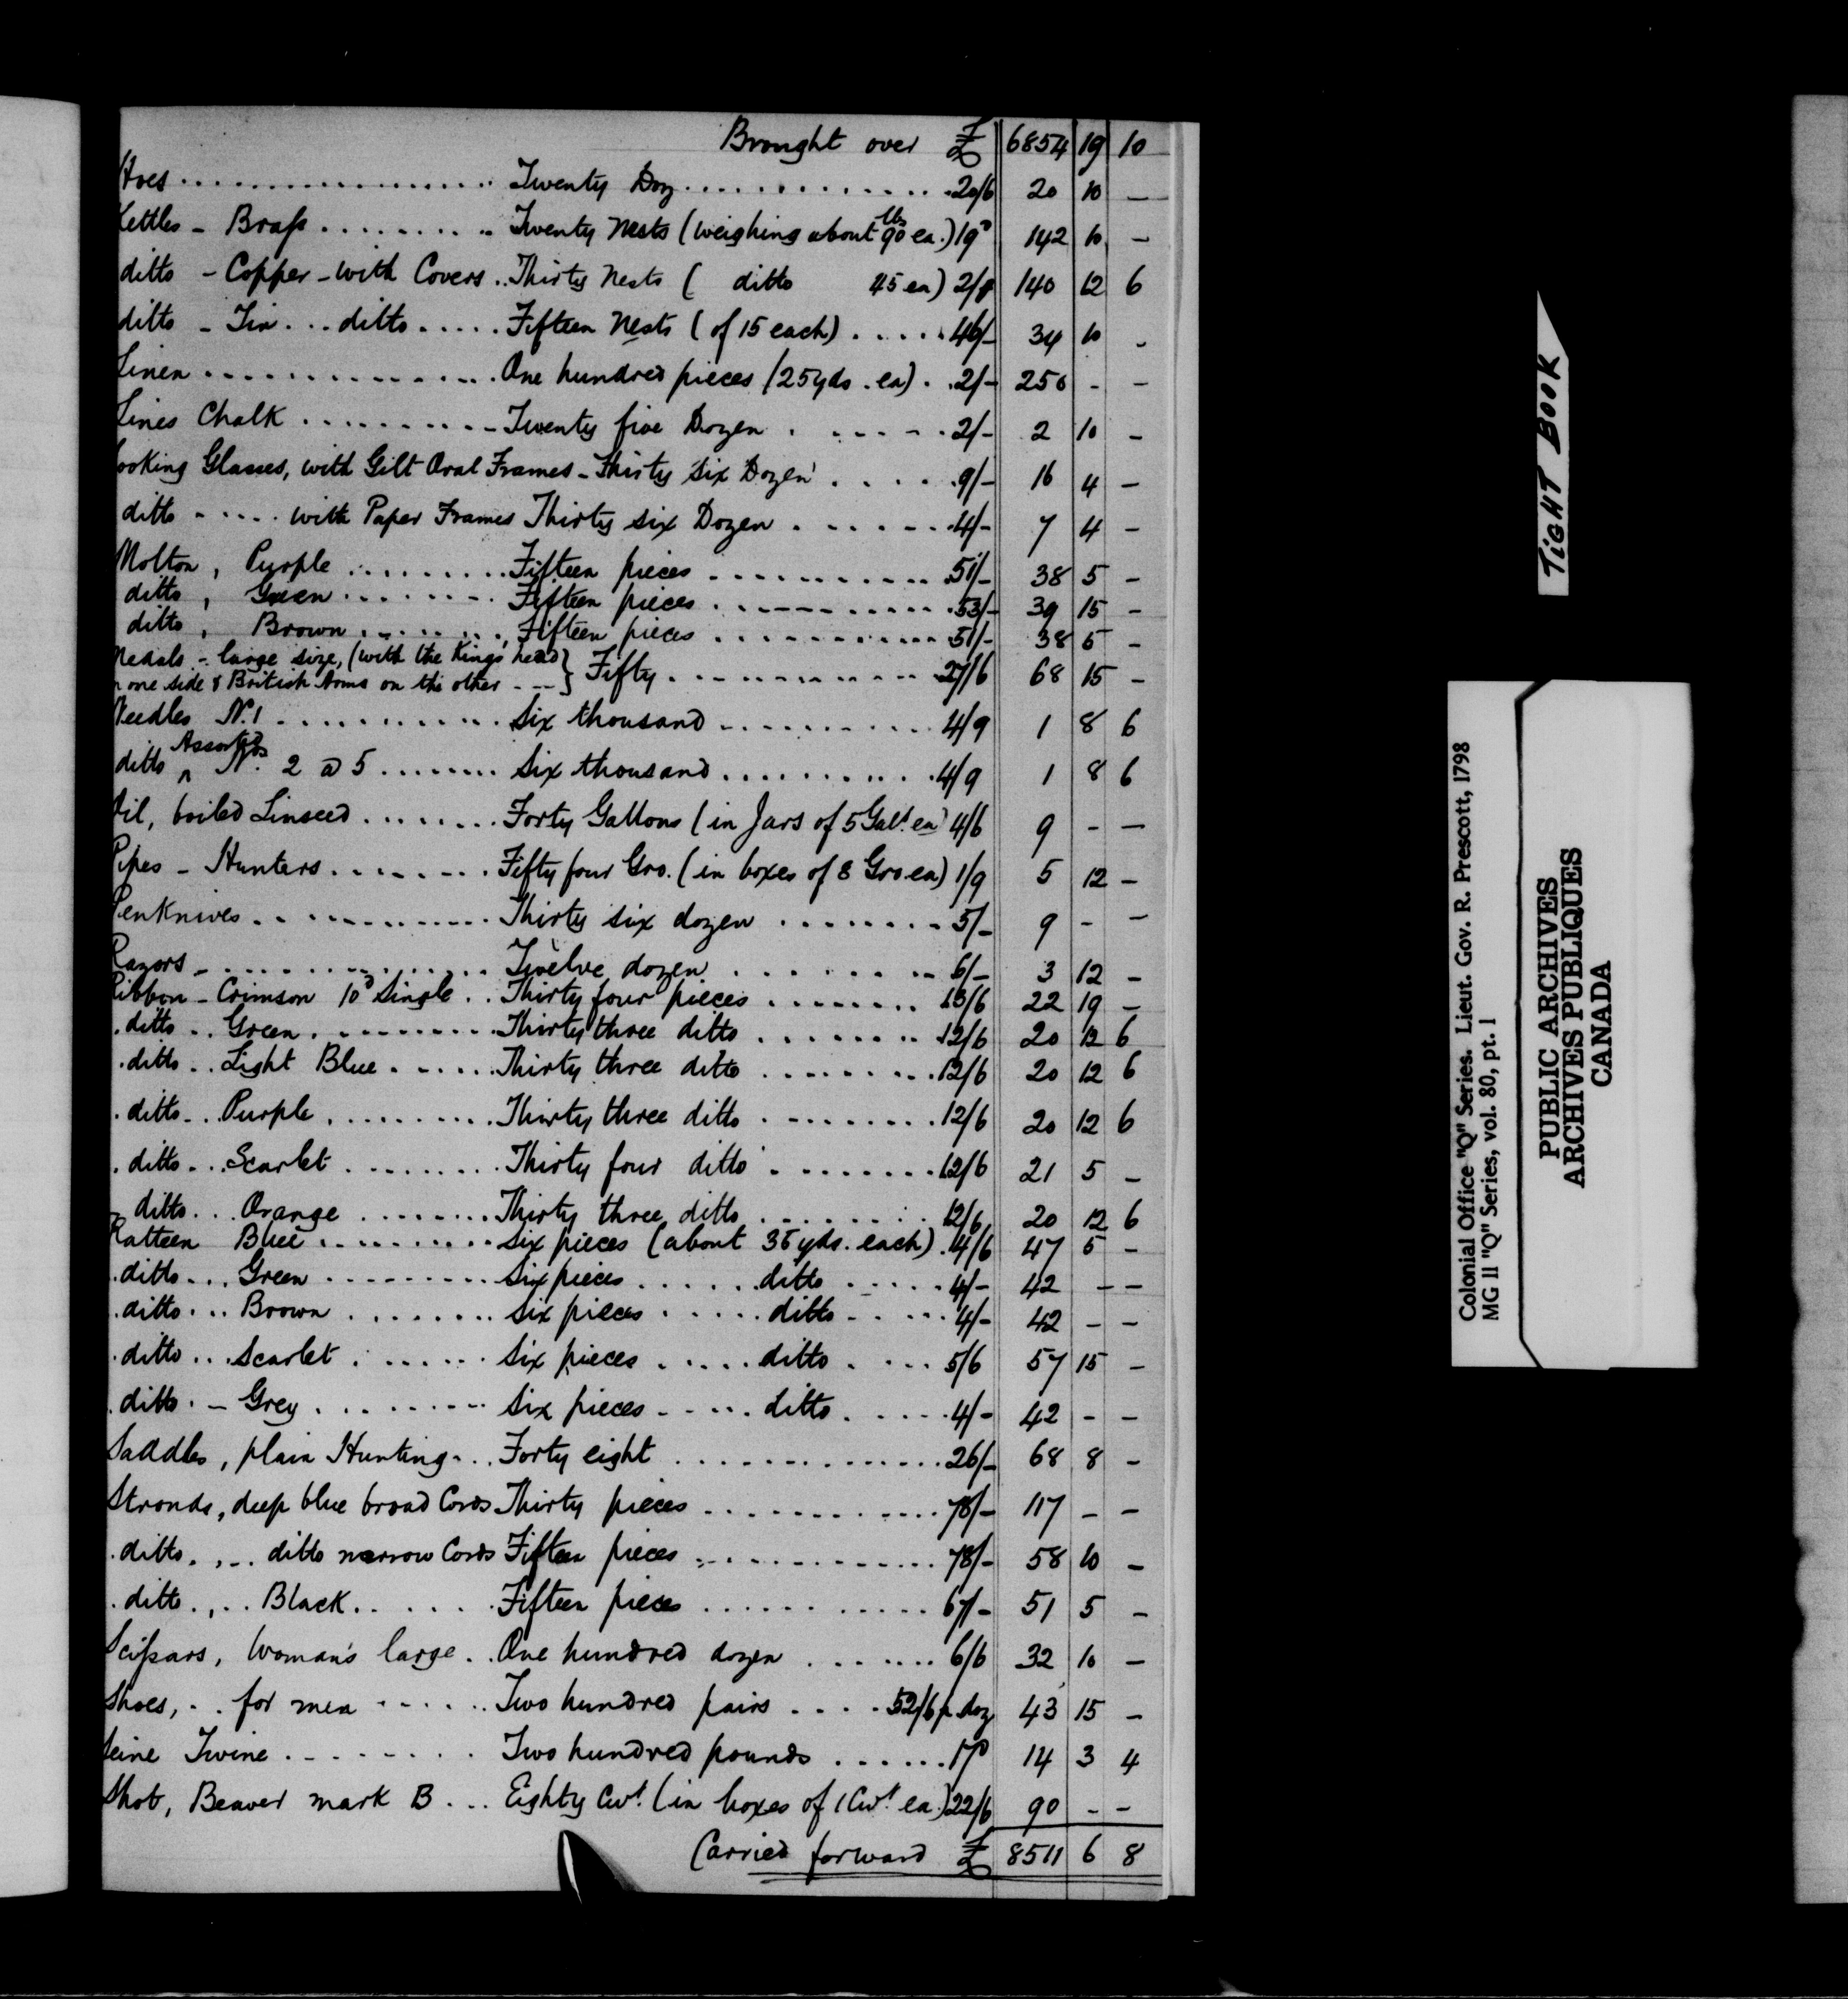 Brought over £ 6854 19 10
Hoes . . . Twenty Doz . . . 20/6 20 10 —
Kettles – Brass . . . Twenty Nests (weighing about 90 lbs ea.) 19ᵈ 142 10 —
ditto – Copper – with Covers . . Thirty Nests ( ditto 45 ea) 2/1 140 12 6
ditto – Tin . . . ditto . . . Fifteen Nests (of 15 each) . . . 46/– 34 10 –
Linen . . . One hundred pieces (25 yds. ea) . . 2/– 250 – –
Lines Chalk . . . Twenty five Dozen . . . 2/– 2 10 –
Looking Glasses, with Gilt Oval Frames – Thirty Six Dozen . . . 9/– 16 4 –
ditto . . . with Paper Frames Thirty six Dozen . . . 4/– 7 4 –
Molton, Purple . . . Fifteen pieces . . . 51/– 38 5 –
ditto, Green . . . Fifteen pieces . . . 53/– 39 15 –
ditto, Brown . . . Fifteen pieces . . . 51/– 38 5 –
Medals – large size, (with the Kings head
on one side & British Arms on the other – – } Fifty . . . 27/6 68 15 –
Needles Nº. 1 . . . Six thousand . . . 4/9 1 8 6
ditto ^ Assorted Nos. 2 @ 5 . . . Six thousand . . . 4/9 1 8 6
Oil, boiled Linseed . . . Forty Gallons (in Jars of 5 Galˢ. ea) 4/6 9 – –
Pipes – Hunters . . . Fifty four Gro. (in boxes of 8 Gro ea) 1/9 5 12 –
Penknives . . . Thirty six dozen . . . 5/– 9 – –
Razors – . . . Twelve dozen . . . 6/– 3 12 –
Ribbon – Crimson 10ᵈ Single . . Thirty four pieces . . . 13/6 22 19 –
ditto . . Green . . . Thirty three ditto . . . 12/6 20 12 6
ditto . . Light Blue . . . Thirty three ditto . . . 12/6 20 12 6
ditto . . Purple . . . Thirty three ditto . . . 12/6 20 12 6
ditto . . . Scarlet . . . Thirty four ditto . . . 12/6 21 5 –
ditto . . . Orange . . . Thirty three ditto . . . 12/6 20 12 6
Ratteen Blue . . . Six pieces (about 35 yds. each) . 4/6 47 5 –
ditto . . . Green . . . Six pieces . . . ditto . . . 4/– 42 – –
ditto . . . Brown . . . Six pieces . . . ditto . . . 4/– 42 – –
ditto . . . Scarlet . . . Six pieces . . . ditto . . . 5/6 57 15 –
ditto . – Grey . . . Six pieces . . . ditto . . . 4/– 42 – –
Saddles, plain Hunting . . . Forty eight . . . 26/– 68 8 –
Stronds, deep blue broad Cords Thirty pieces . . . 78/– 117 – –
ditto . , . . ditto narrow Cords Fifteen pieces . . . 78/– 58 10 –
ditto . , . . Black . . . Fifteen pieces . . . 67/– 51 5 –
Scissars, Woman's large . . One hundred dozen . . . 6/6 32 10 –
Shoes, . . for men . . . Two hundred pairs . . . 52/6 p doz 43 15 –
Seine Twine . . . Two hundred pounds . . . 17ᵈ 14 3 4
Shot, Beaver mark B . . . Eighty Cwᵗ. (in boxes of 1 Cwᵗ. ea.) 22/6 90 – –
Carried forward £ 8511 6 8
TIGHT BOOK
Colonial Office "Q" Series. Lieut. Gov. R. Prescott, 1798
MG 11 "Q" Series, vol. 80, pt. 1
PUBLIC ARCHIVES
ARCHIVES PUBLIQUES
CANADA